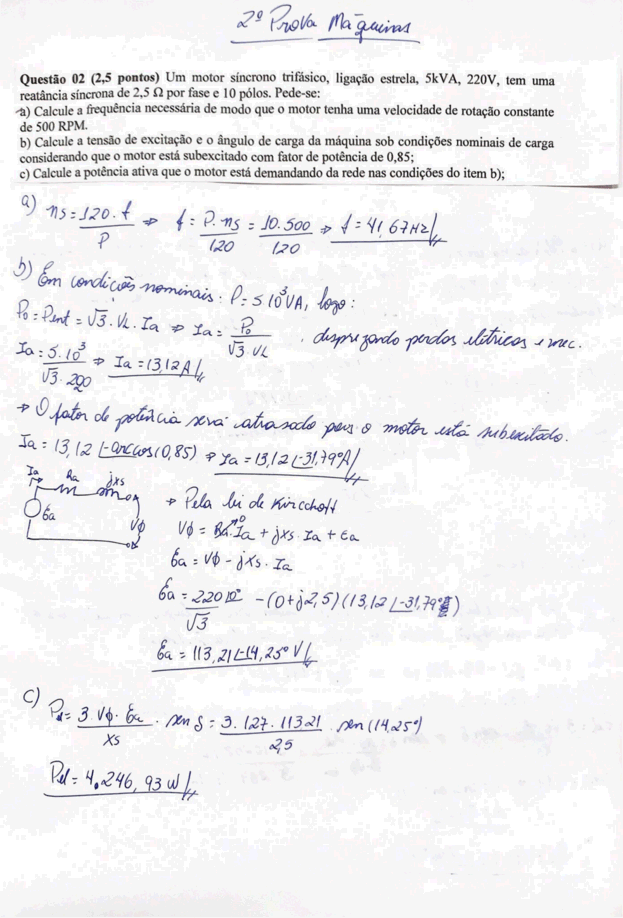 2ª Prova Máquinas
Questão 02 (2,5 pontos) Um motor síncrono trifásico, ligação estrela, 5kVA, 220V, tem uma
reatância síncrona de 2,5 Ω por fase e 10 pólos. Pede-se:
a) Calcule a frequência necessária de modo que o motor tenha uma velocidade de rotação constante
de 500 RPM.
b) Calcule a tensão de excitação e o ângulo de carga da máquina sob condições nominais de carga
considerando que o motor está subexcitado com fator de potência de 0,85;
c) Calcule a potência ativa que o motor está demandando da rede nas condições do item b);
a) ns = 120.f / P ⇒ f = P.ns / 120 = 10.500 / 120 ⇒ f = 41,67Hz //
b) Em condições nominais: P = 5 10³ VA, logo:
Po = Pent = √3 . VL . Ia ⇒ Ia = Po / √3 . VL . desprezando perdas elétricas e mec.
Ia = 5.10³ / √3 . 220 ⇒ Ia = 13,12 A //
→ O fator de potência será atrasado pois o motor está subexcitado.
Ia = 13,12 ∠-arccos(0,85) ⇒ Ia = 13,12 ∠-31,79° A //
Ia Ra jxs
Ea Vϕ
→ Pela lei de Kircchoff
Vϕ = Ra.Ia + jxs . Ia + Ea
Ea = Vϕ - jxs . Ia
Ea = 220∠0° / √3 - (0+j2,5)(13,12 ∠-31,79°)
Ea = 113,21∠-14,25° V //
c) Pel = 3.Vϕ.Ea / xs . sen δ = 3.127.11321 / 2,5 . sen(14,25°)
Pel = 4.246,93 W //